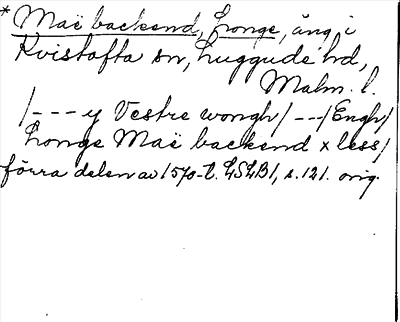 * Maë backend, Longe, äng i
Kvistofta sn, Luggude hd,
Malm. l.
/--- y Vestre wongh/---/Engh/
Longe Maë backend x less/
förra delen av 1570-t. LSLB1, s. 121. orig.